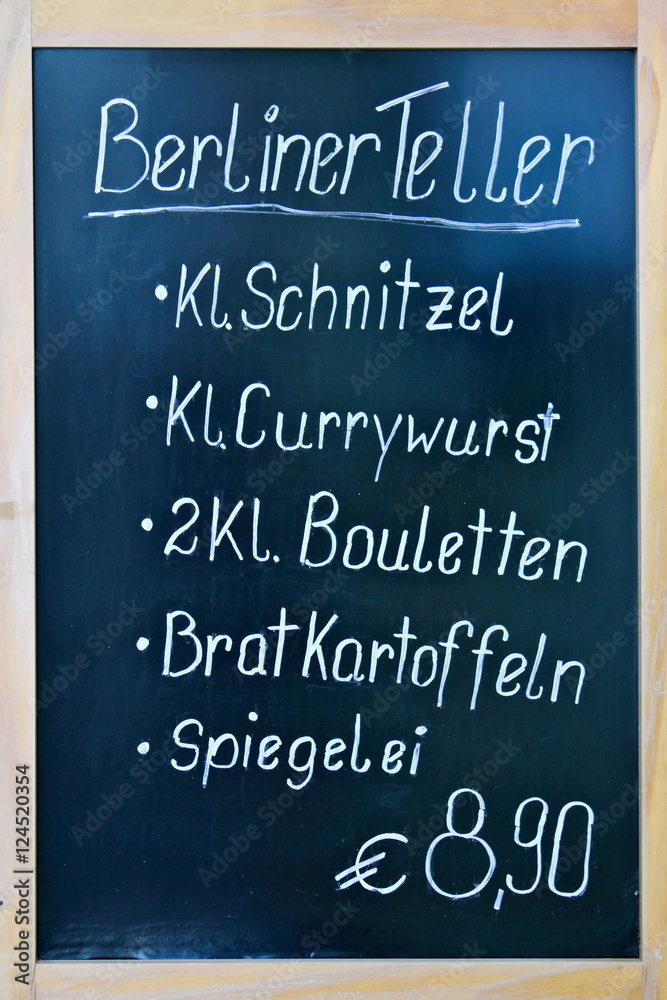 Berliner Teller
• Kl. Schnitzel
• Kl. Currywurst
• 2 Kl. Bouletten
• BratKartoffeln
• Spiegelei
€ 8,90
124520354
Adobe Stock